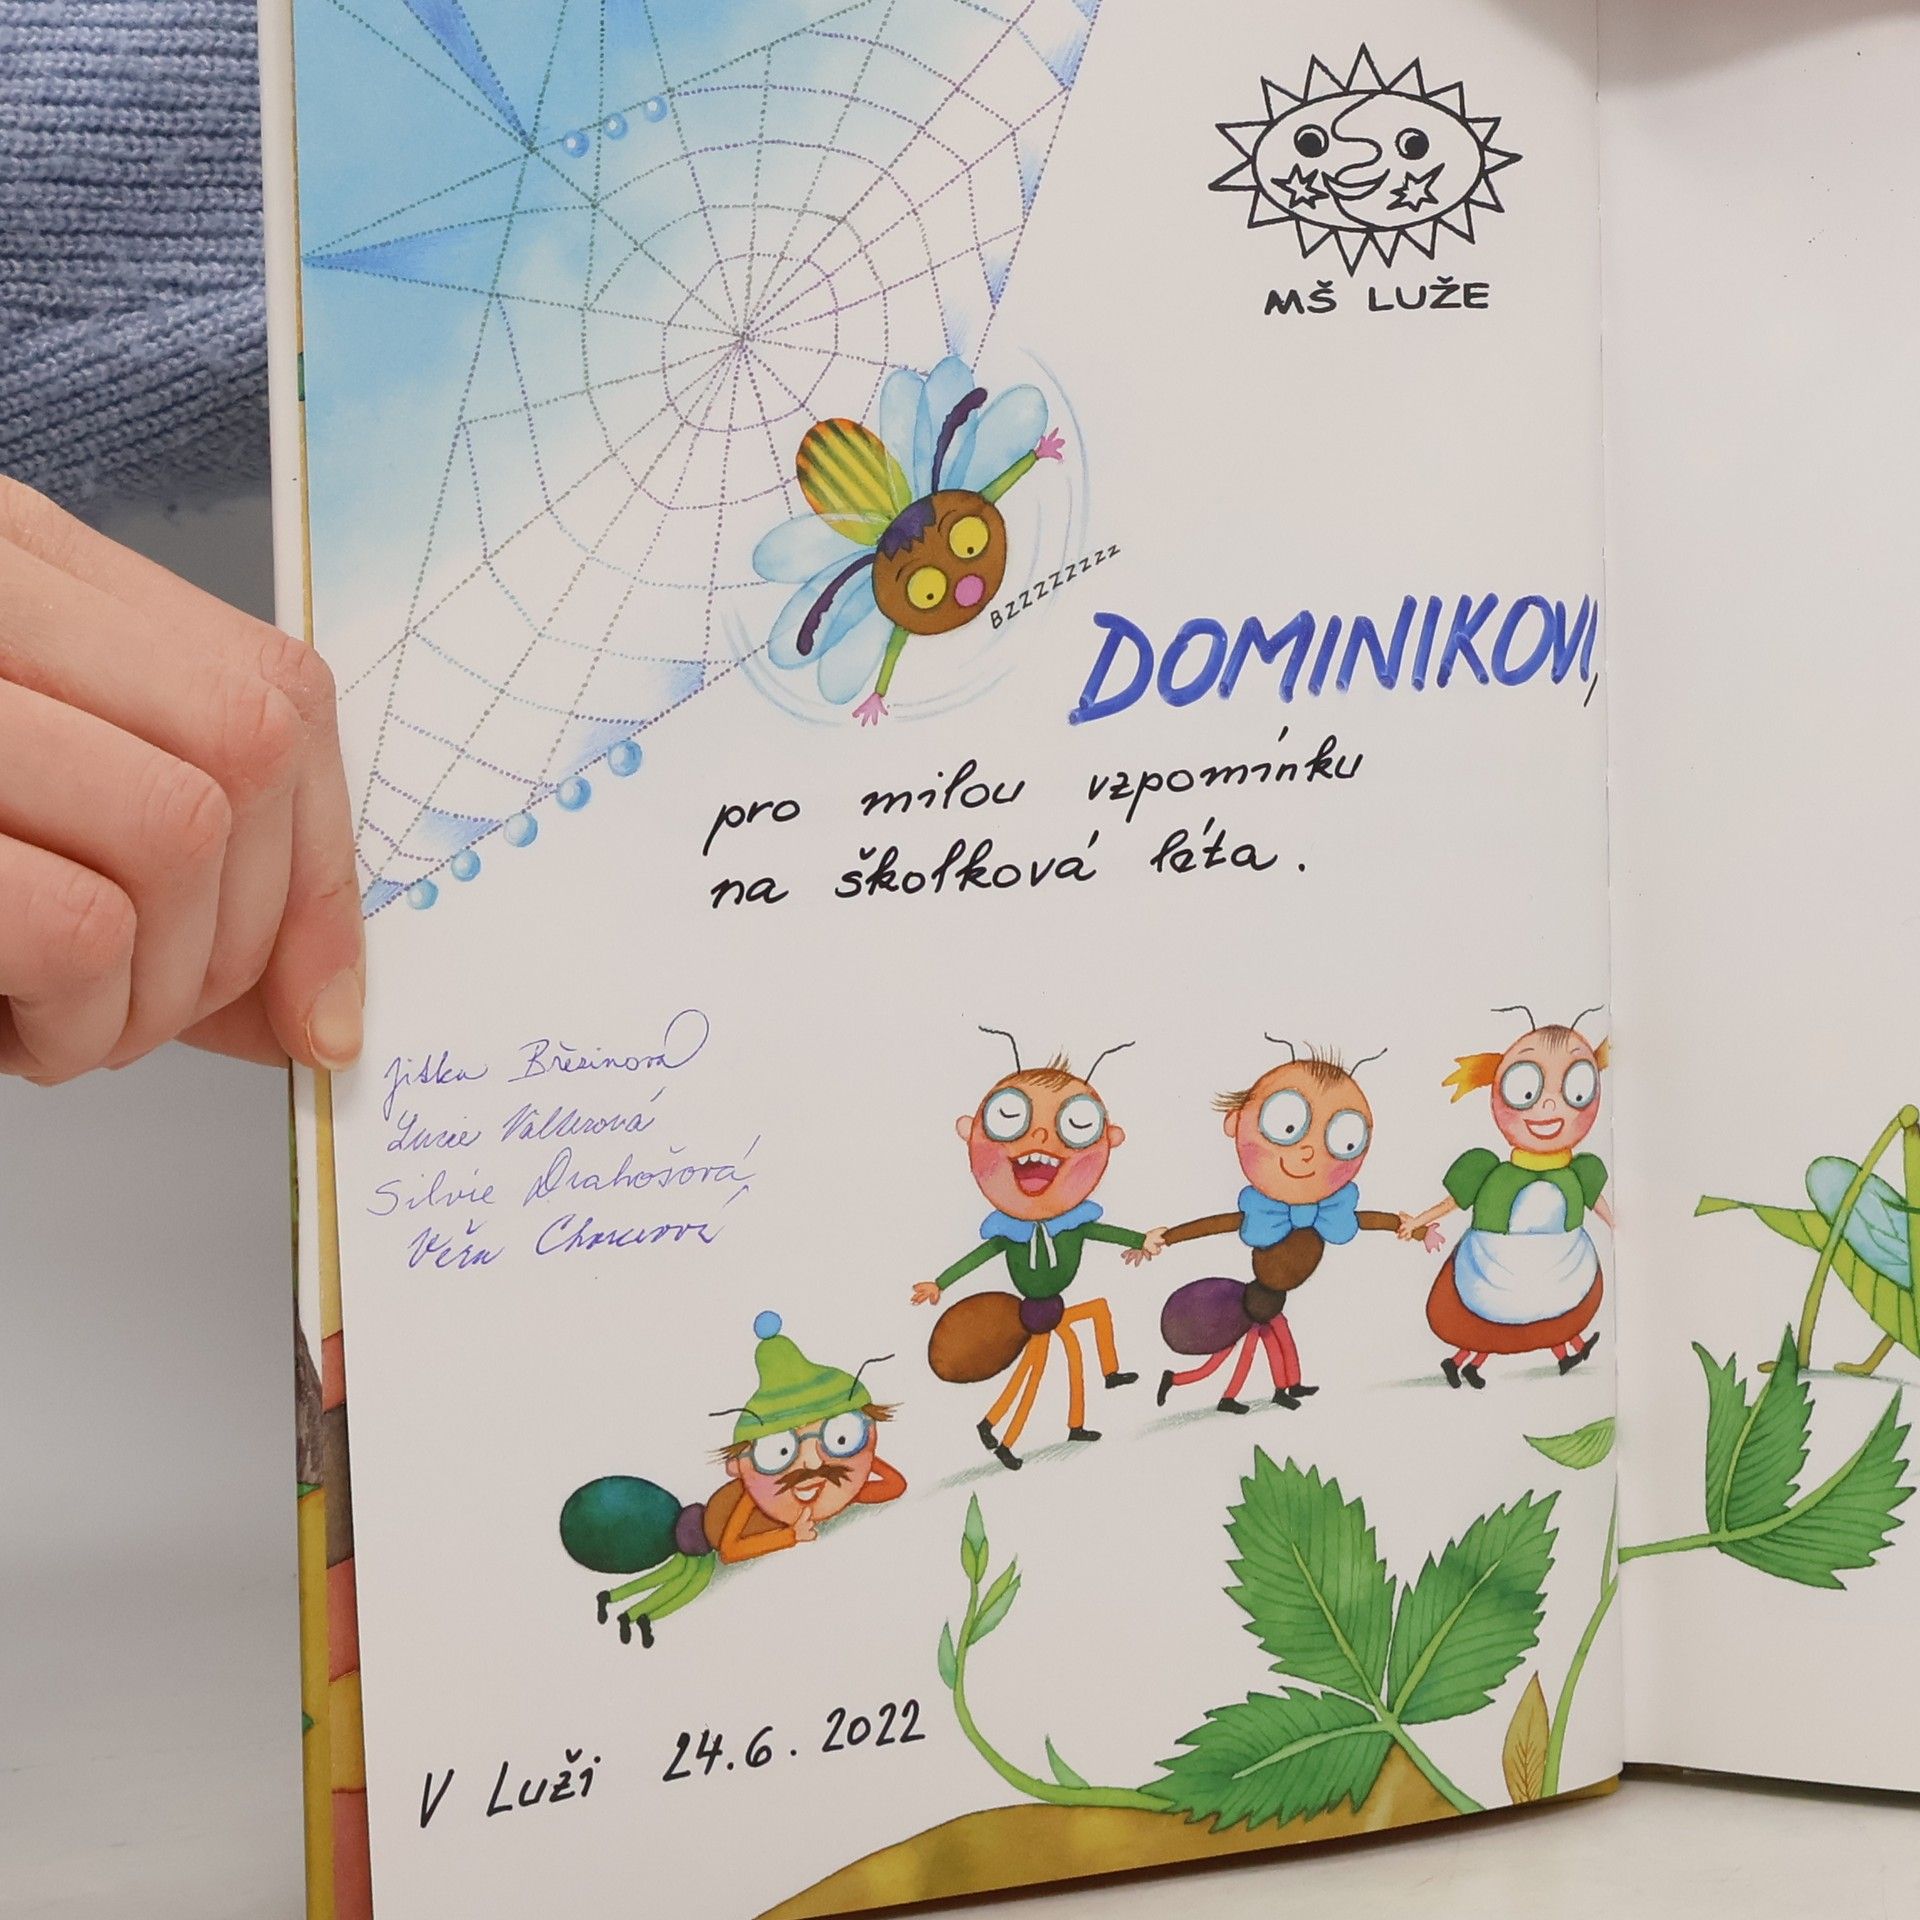 MŠ LUŽE
BZZZZZZZZZ
DOMINIKOVI,
pro milou vzpomínku
na školková léta.
Jitka Březinová
Lucie Valterová
Silvie Drahošová
Věra
V Luži 24.6.2022